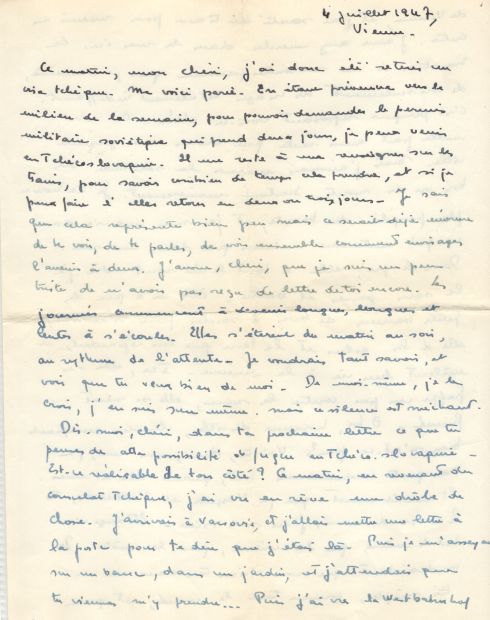 4 juillet 1947,
Vienne.
Ce matin, mon chéri, j'ai donc été retirer un
visa tchèque. Me voici parée. En étant prévenue vers le
milieu de la semaine, pour pouvoir demander le permis
militaire soviétique qui prend deux jours, je peux venir
en Tchécoslovaquie. Il me reste à me renseigner sur les
trains, pour savoir combien de temps cela prendra, et si je
peux faire l'aller retour en deux ou trois jours. Je sais
que cela représente bien peu mais ce serait déjà énorme
de te voir, de te parler, de voir ensemble comment envisager
l'avenir à deux. J'avoue, chéri, que je suis un peu
triste de n'avoir pas reçu de lettre de toi encore. Les
journées commencent à devenir longues, longues et
lentes à s'écouler. Elles s'étirent du matin au soir,
au rythme de l'attente. Je voudrais tant savoir, et
voir que tu veux bien de moi. De moi-même, je le
crois, j'en suis sûre même. mais ce silence est méchant.
Dis-moi, chéri, dans ta prochaine lettre ce que tu
penses de cette possibilité en Tchécoslovaquie.
Est-ce réalisable de ton côté? Ce matin, en revenant du
consulat Tchèque, j'ai vu en rêve une drôle de
chose. J'arrivais à Varsovie, et j'allais mettre une lettre à
la poste pour te dire que j'étais là. Puis je m'asseyais
sur un banc, dans un jardin, et j'attendais que
tu viennes m'y prendre... Puis j'ai vu le Westbahnhof